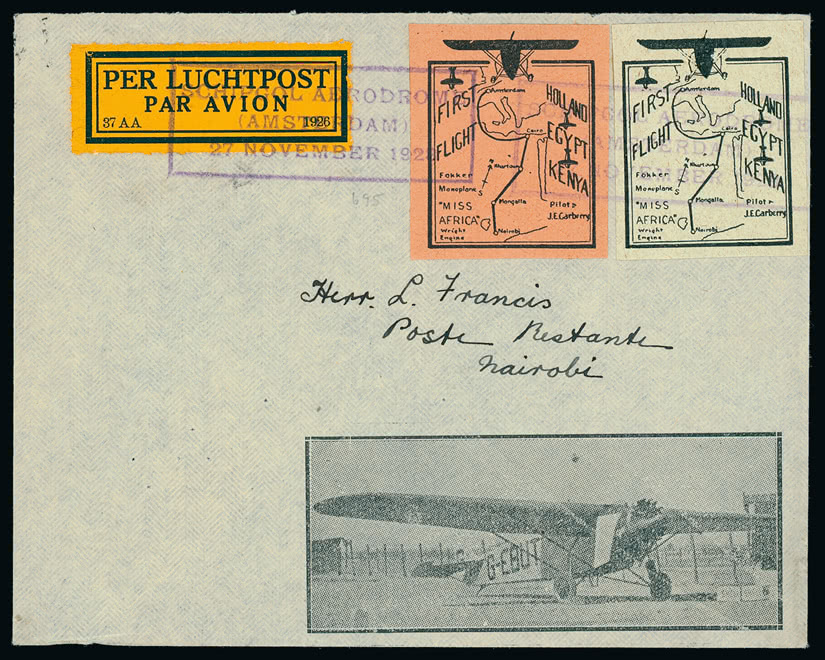 PER LUCHTPOST
PAR AVION
37 AA 1926
SCHIPGOL AERODROME
(AMSTERDAM)
27 NOVEMBER 192
695
FIRST
FLIGHT
HOLLAND
EGYPT
KENYA
Amsterdam
Cairo
Khartoum
Mongalla
Nairobi
Fokker
Monoplane
"MISS
AFRICA"
Wright
Engine
Pilot
J.E.Carberry
FIRST
FLIGHT
HOLLAND
EGYPT
KENYA
Amsterdam
Cairo
Khartoum
Mongalla
Nairobi
Fokker
Monoplane
"MISS
AFRICA"
Wright
Engine
Pilot
J.E.Carberry
Herr. L. Francis
Poste Restante
Nairobi
G-EBUT